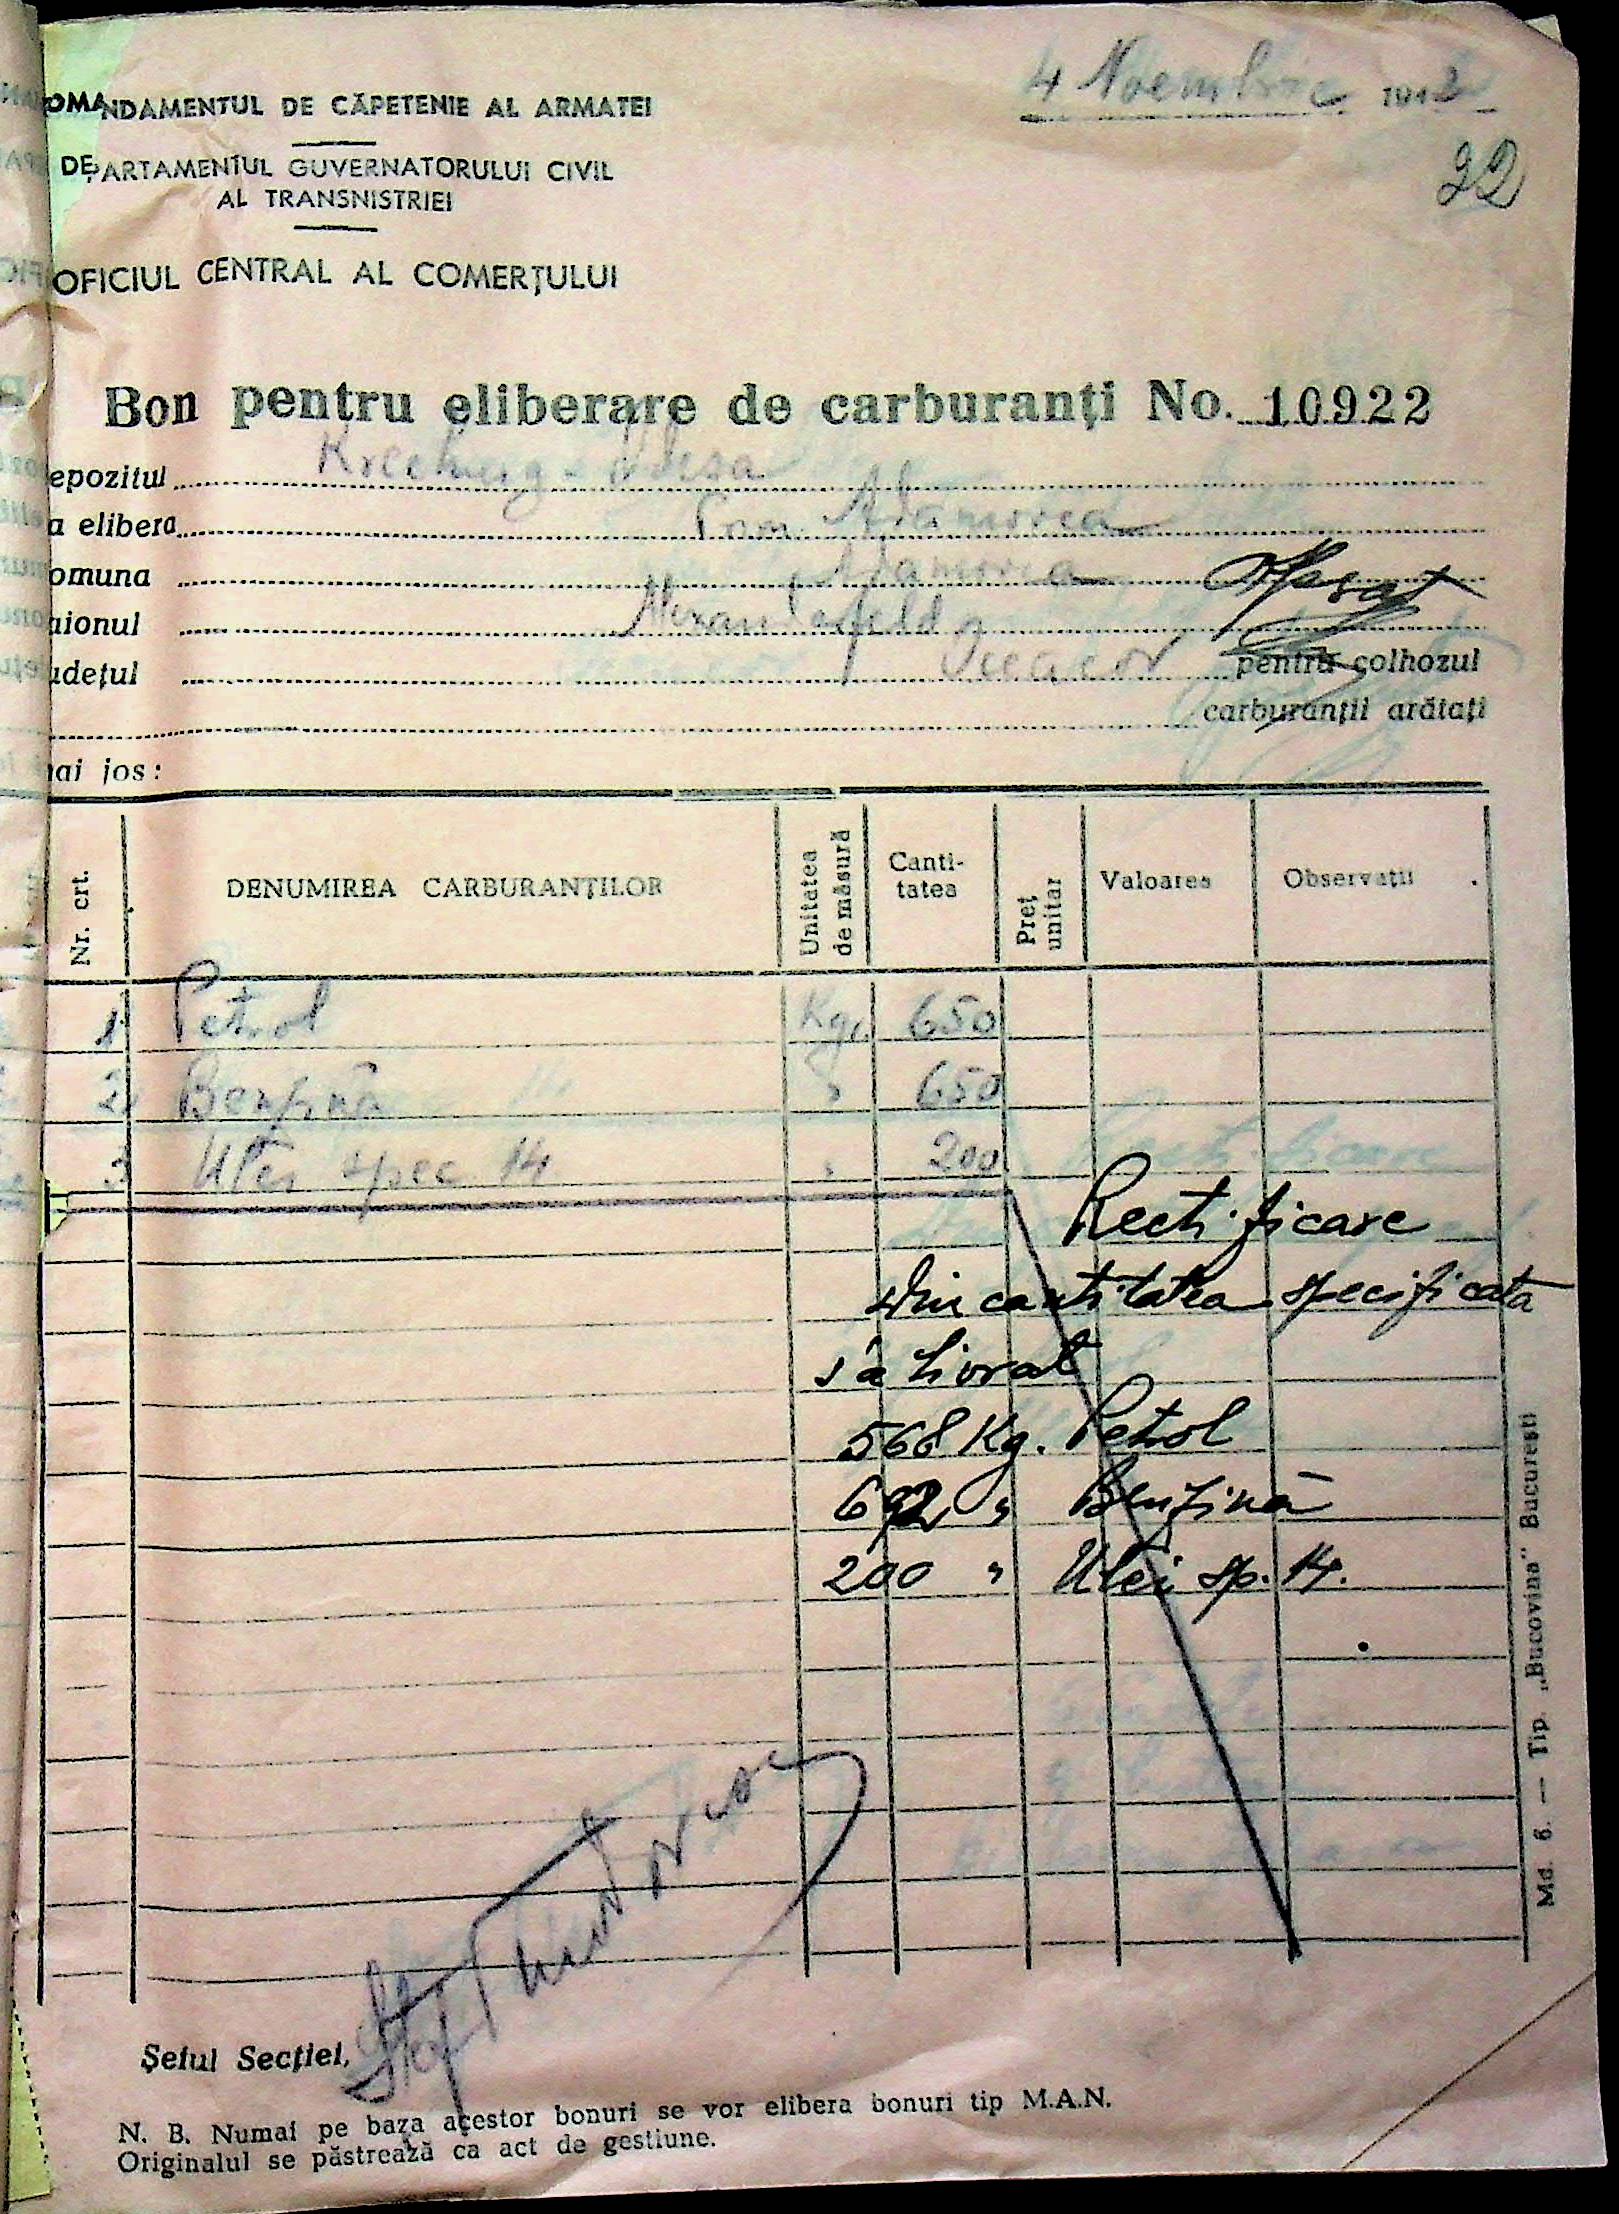 4 Noembrie 1942
22
COMANDAMENTUL DE CĂPETENIE AL ARMATEI
DEPARTAMENTUL GUVERNATORULUI CIVIL
AL TRANSNISTRIEI
OFICIUL CENTRAL AL COMERȚULUI
Bon pentru eliberare de carburanți No. 10922
epozitul
a elibera Com. Adamovca
omuna Adamovca
aionul Alexanderfeld
udețul Oceacov pentru colhozul
carburanții arătați
ai jos:
Nr. crt. DENUMIREA CARBURANȚILOR Unitatea de măsură Canti-tatea Preț unitar Valoarea Observații
1 Petrol Kg. 650
2 Benzină " 650
3 Ulei spec 14 " 200
Rectificare
Din cantitatea specificata
s'a livrat
568 Kg. Petrol
692 " Benzină
200 " Ulei sp. 14.
Șeful Secției,
N. B. Numai pe baza acestor bonuri se vor elibera bonuri tip M.A.N.
Originalul se păstrează ca act de gestiune.
Md. 6. — Tip. „Bucovina" București